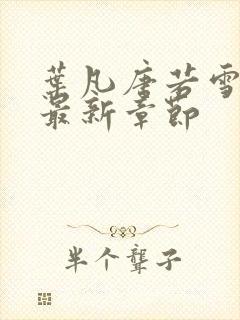 葉凡唐若雪
最新章節
半个聾子